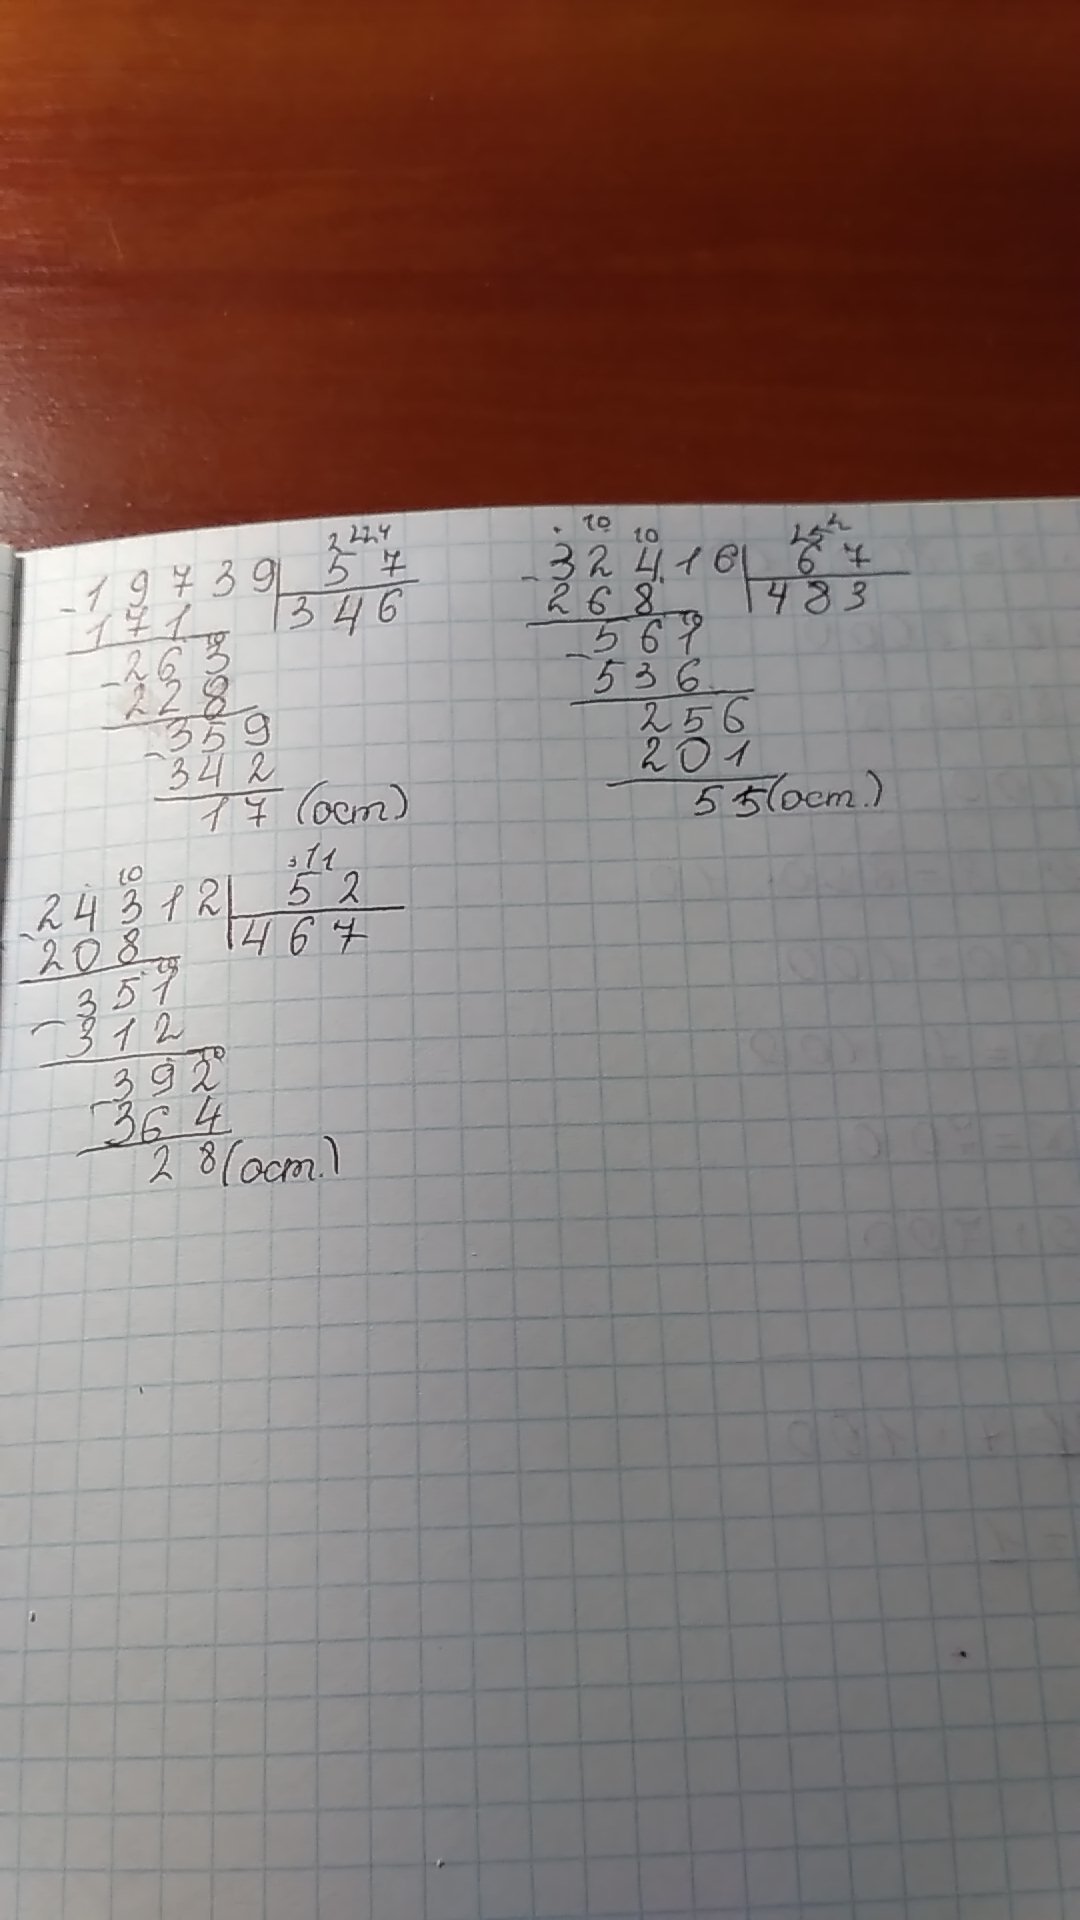 19739 57
171 346
263
228
359
342
17 (ост.)
32416 67
268 483
561
536
256
201
55 (ост.)
24312 52
208 467
351
312
392
364
28 (ост.)